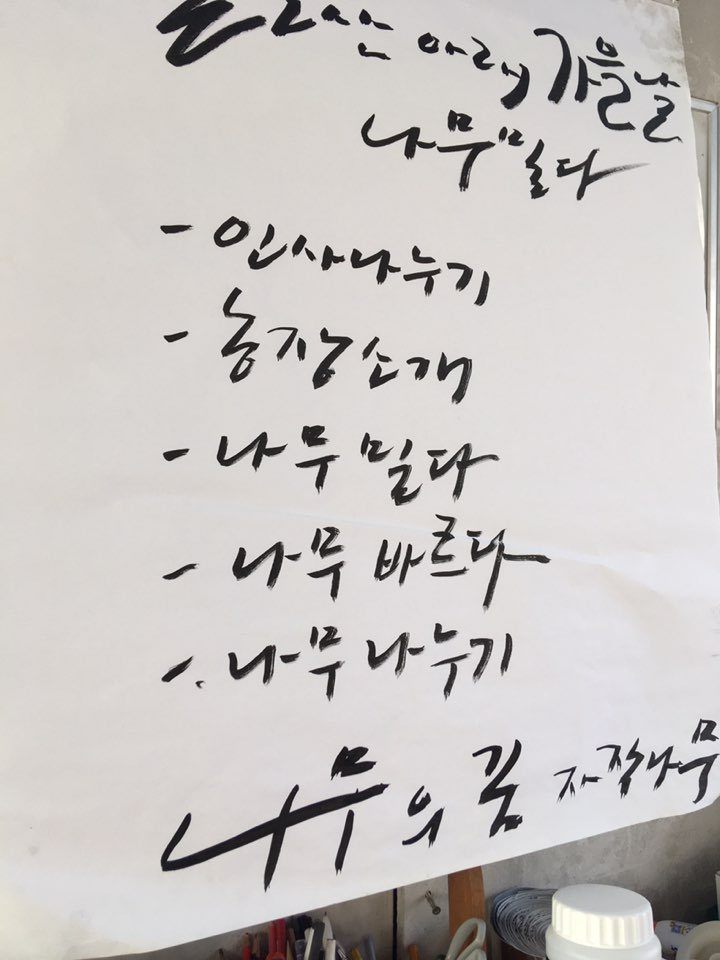 아래 가을날
나무밀다
- 인사나누기
- 농장소개
- 나무밀다
- 나무바르다
- 나무나누기
나무의 꿈 자작나무